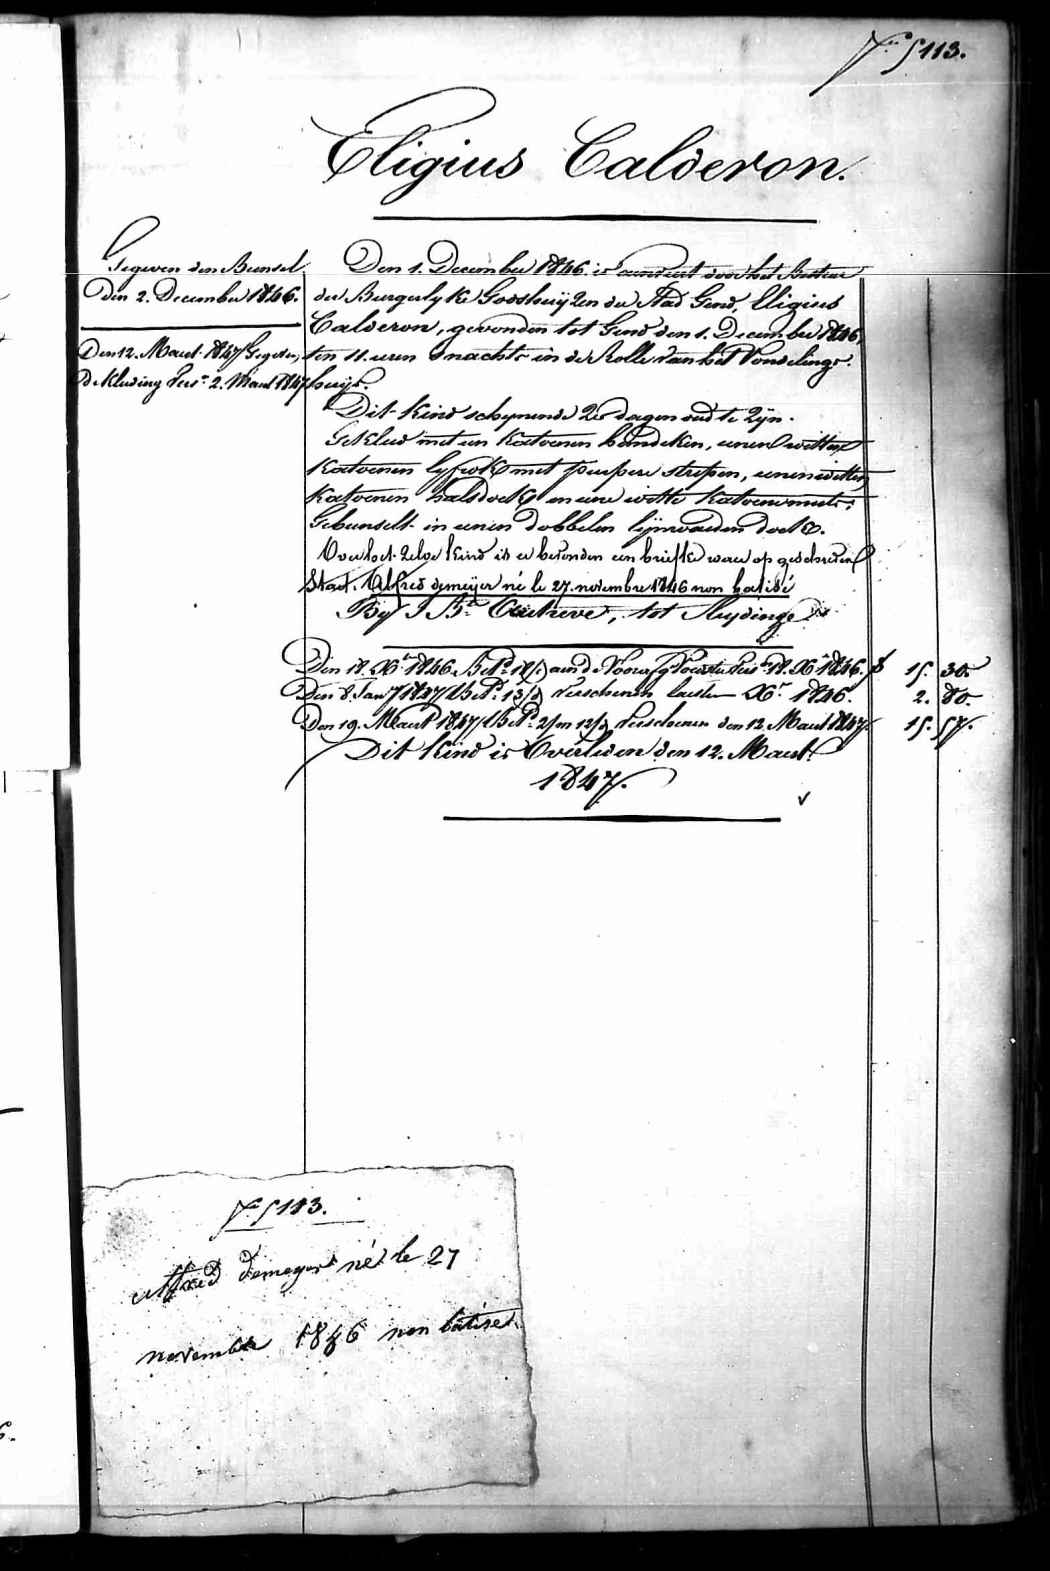 N.º 5113.
Eligius Calderon.
Gegeven den Bunsel
Den 2. December 1846.
Den 12. Maert 1847 Gegeven
de Kleeding Vers.n 2. Maert 1847
Den 1. December 1846. is aenveert door het Bestuer
der Burgerlyke Godshuÿzen der Stad Gend, Eligius
Calderon, gevonden tot Gend den 1. December 1846,
ten 11. uren snachts in de Rolle van het Vondelings-
huys.
Dit Kind schynende dagen oud te Zÿn.
Gekleed met een Katoenen bandeken, eenen witten
Katoenen lyfrok met purpere strepen, eenen witten
Katoenen halsdoek en eene witte Katoene muts.
Gebunselt in eenen dobbelen lÿnwaeden doek.
Voor het Zelve Kind is er bevonden een briefke waer op geschreven
Staet. Alfred demeÿer né le 27. novembre 1846 non batisé
By J. B.te tot Sleydinge
Den 18. Xb. 1846. Bet. 18/. aen de Voorsz. Voedster Vers. 18. Xb. 1846. f 15. 30.
Den 8. Jan. 1847 Bet. 13/. Verschenen laesten Xb. 1846. 2. 80.
Den 19. Maert 1847 Bet. 2/m 12/. Verschenen den 12. Maert 1847. 15. 57.
Dit Kind is Overleden den 12. Maert
1847.
N.º 5113.
alfred demeyer né le 27
novembre 1846 non batisé